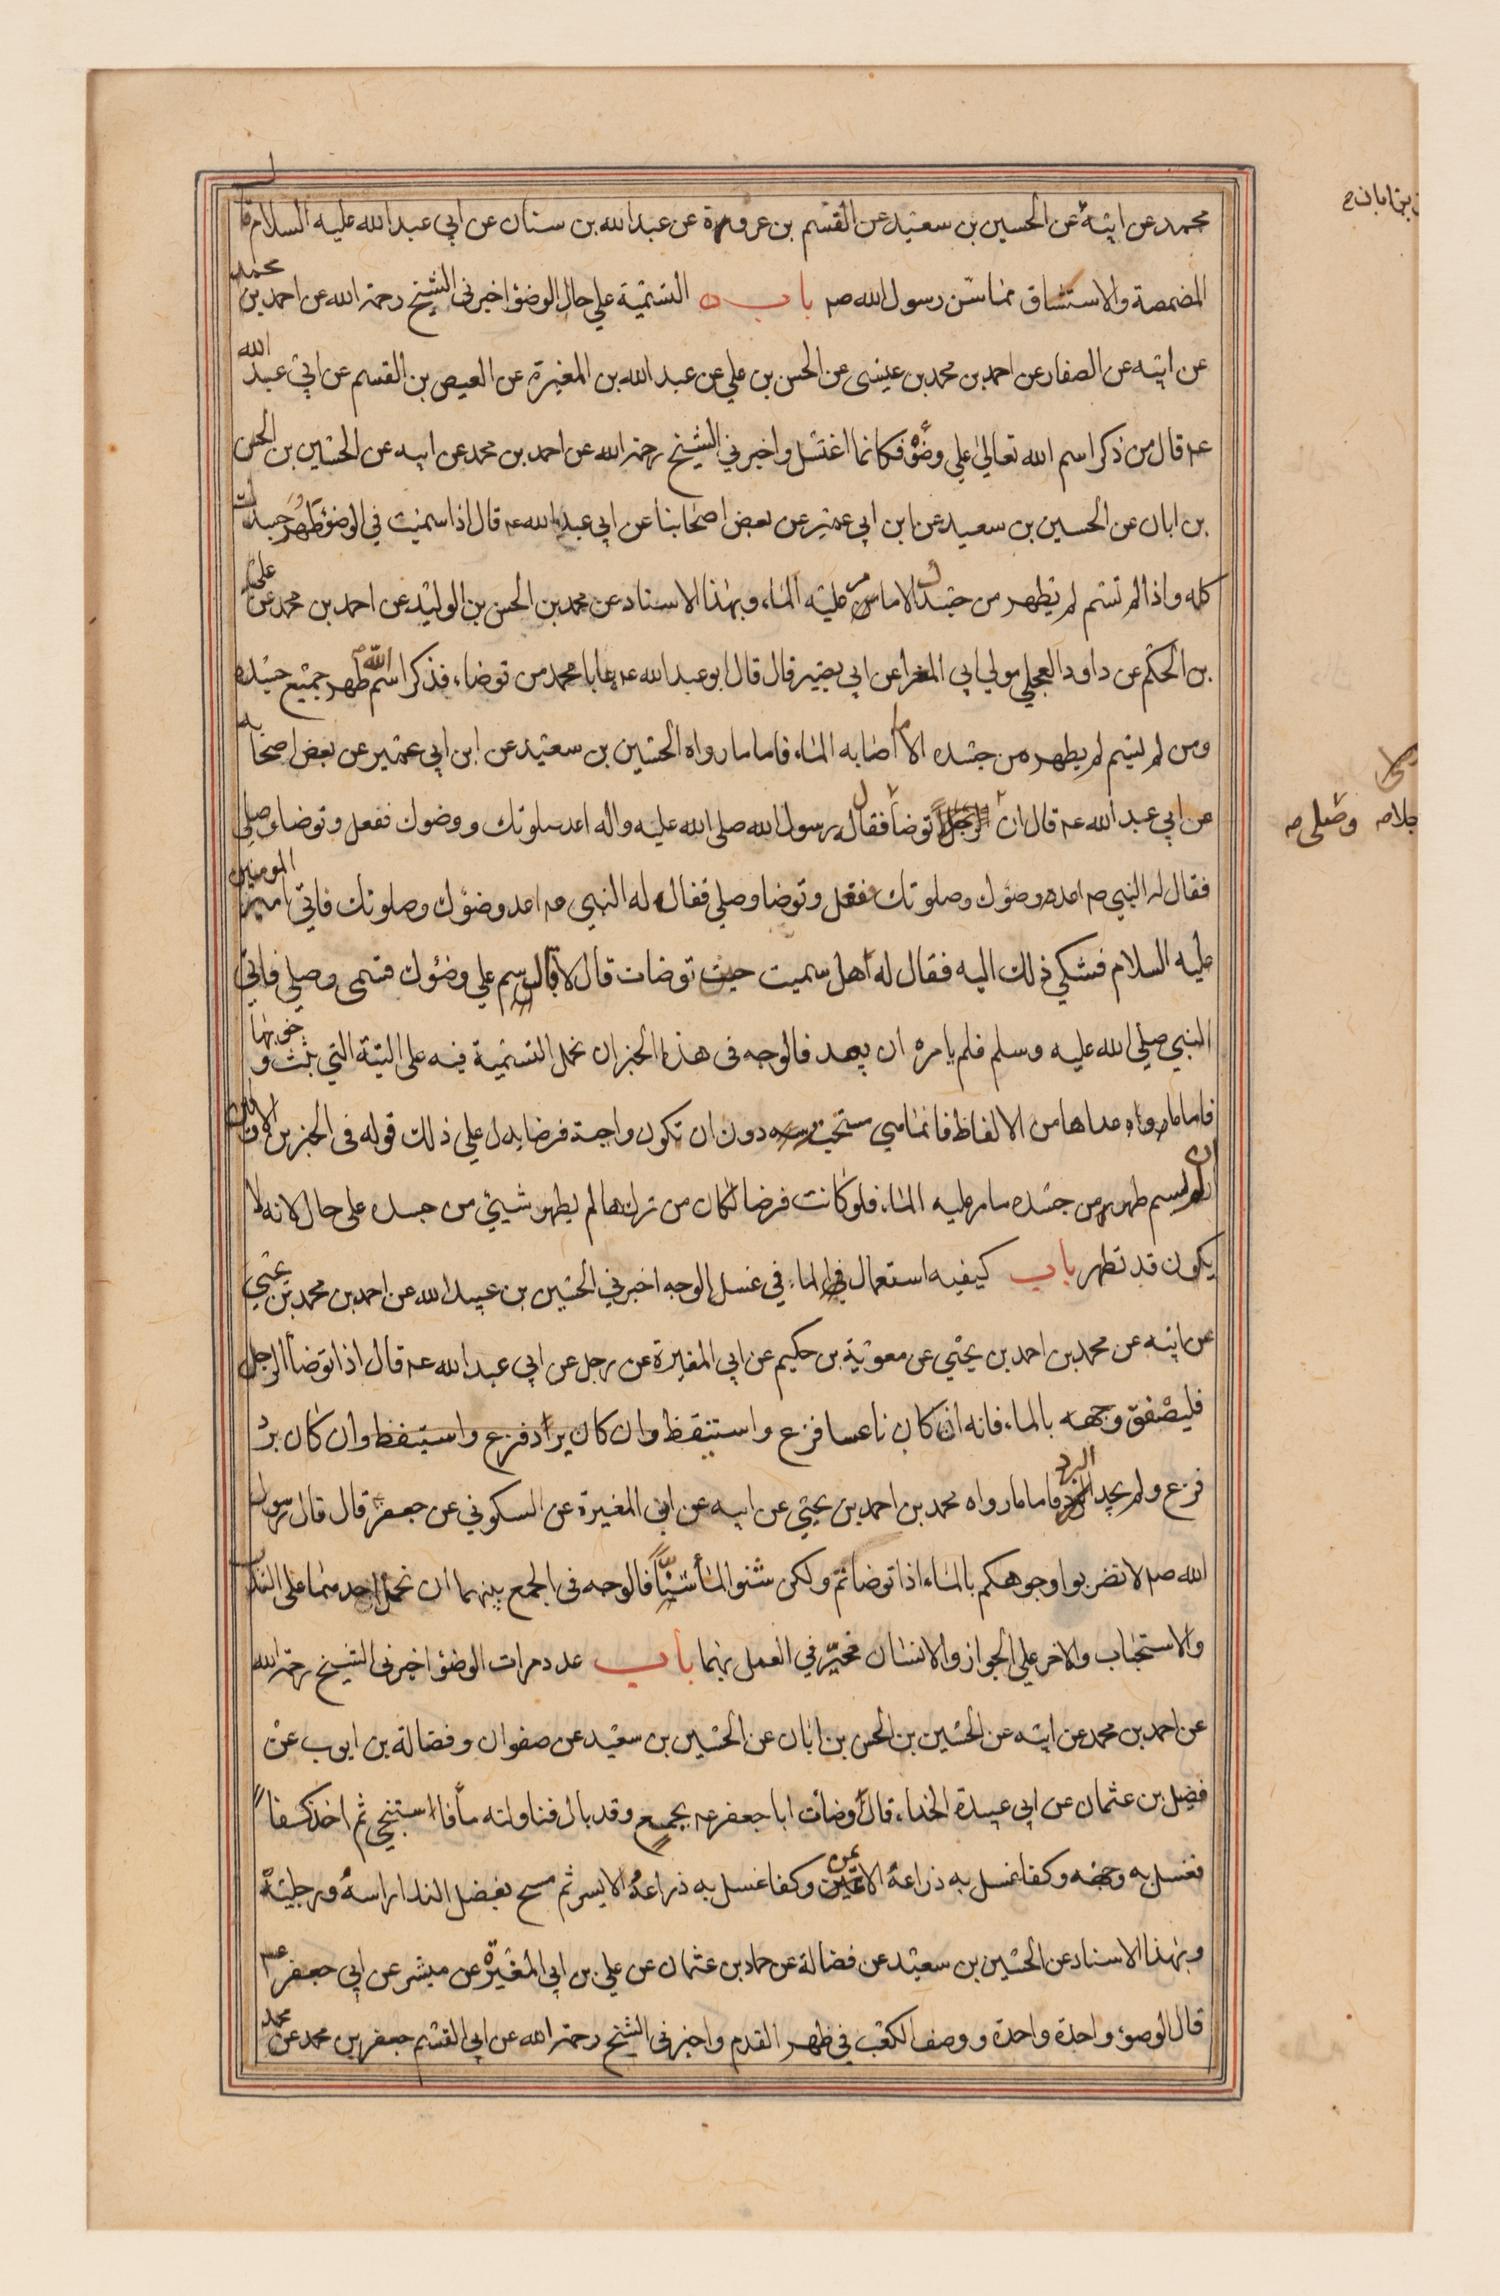 محمد عن ابيه عن الحسين بن سعيد عن القسم بن عروة عن عبدالله بن سنان عن ابي عبدالله عليه السلام قال
المضمضة والاستنشاق مما سن رسول الله صم باب التسمية علي حال الوضؤ اخبرني الشيخ رحمة الله عن احمد بن محمد
عن ابيه عن الصفار عن احمد بن محمد بن عيسى عن الحسن بن علي عن عبد الله بن المغيرة عن العيص بن القسم عن ابي عبد الله
عم قال من ذكر اسم الله تعالي علي وضؤه فكانما اغتسل واخبرني الشيخ رحمة الله عن احمد بن محمد عن ابيه عن الحسين بن الحسن
بن ابان عن الحسين بن سعيد عن ابن ابي عمير عن بعض اصحابنا عن ابي عبد الله عم قال اذا سميت في الوضؤ طهر جسدك
كله واذا لم تسم لم يطهر من جسدك الا ما مر عليه الماء، وبهذا الاسناد عن محمد بن الحسن بن الوليد عن احمد بن محمد عن علي
بن الحكم عن داود العجلي مولي ابي المغرا عن ابي بصير قال قال ابو عبد الله عم يابا محمد من توضاء، فذكر اسم الله طهر جميع جسده
ومن لم يسم لم يطهر من جسده الا ما اصابه الماء فاما ما رواه الحسين بن سعيد عن ابن ابي عمير عن بعض اصحابه
عن ابي عبد الله عم قال ان رجلا توضأ فقال رسول الله صلى الله عليه واله اعد صلوتك ووضوك ففعل وتوضا وصلي
فقال له النبي صم اعد وضوك وصلوتك ففعل وتوضا وصلي فقال له النبي عم اعد وضؤك وصلوتك فاتي امير المومنين
عليه السلام فشكي ذلك اليه فقال له هل سميت حيث توضات قال لا قال سم علي وضؤك فسمى وصلي فاتي
النبي صلي الله عليه وسلم فلم يامره ان يعيد فالوجه في هذا الخبر ان نحمل التسمية فيه على النية التي ثبت وجوبها
فاما ما رواه عداها من الالفاظ فانما هي مستحبة دون ان تكون واجبة فرضا يدل علي ذلك قوله في الخبرين الاولين
ان لم يسم طهر من جسده ما مر عليه الماء فلو كانت فرضا لكان من تركها لم يطهر شيئ من جسده على حال لانه لا
يكون قد تطهر باب كيفيه استعمال الماء في غسل الوجه اخبرني الحسين بن عبيد الله عن احمد بن محمد بن يحيي
عن ابيه عن محمد بن احمد بن يحيي عن معوية بن حكيم عن ابي المغيرة عن رجل عن ابي عبد الله عم قال اذا توضأ الرجل
فليصفق وجهه بالماء فانه ان كان ناعسا فزع واستيقظ وان كان برد فزع واستيقظ وان كان برد
فزع ولم يجد البرد فاما ما رواه محمد بن احمد بن يحيي عن ابيه عن ابن المغيرة عن السكوني عن جعفر قال قال رسول
الله صم لا تضربوا وجوهكم بالماء اذا توضاتم ولكن شنوا الماء شنا فالوجه في الجمع بينهما ان نحمل احدهما على الندب
والاستحباب والاخر على الجواز والانسان مخير في العمل بهما باب عدد مرات الوضؤ اخبرني الشيخ رحمة الله
عن احمد بن محمد عن ابيه عن الحسين بن الحسن بن ابان عن الحسين بن سعيد عن صفوان وفضالة بن ايوب عن
فضيل بن عثمان عن ابي عبيدة الحذاء، قال وضأت ابا جعفر عم بجمع وقد بال فناولته مآ فاستنجي ثم اخذ كفا
فغسل به وجهه وكفا غسل به ذراعه الايمن وكفا غسل به ذراعه الايسر ثم مسح بفضل الندا راسه ورجليه
وبهذا الاسناد عن الحسين بن سعيد عن فضالة عن حماد بن عثمان عن علي بن ابي المغيرة عن ميسر عن ابي جعفر عم
قال الوضوء واحدة واحدة ووصف الكعب في ظهر القدم واخبرني الشيخ رحمة الله عن ابي القسم جعفر بن محمد عن محمد
بن ابان
وصلى صه